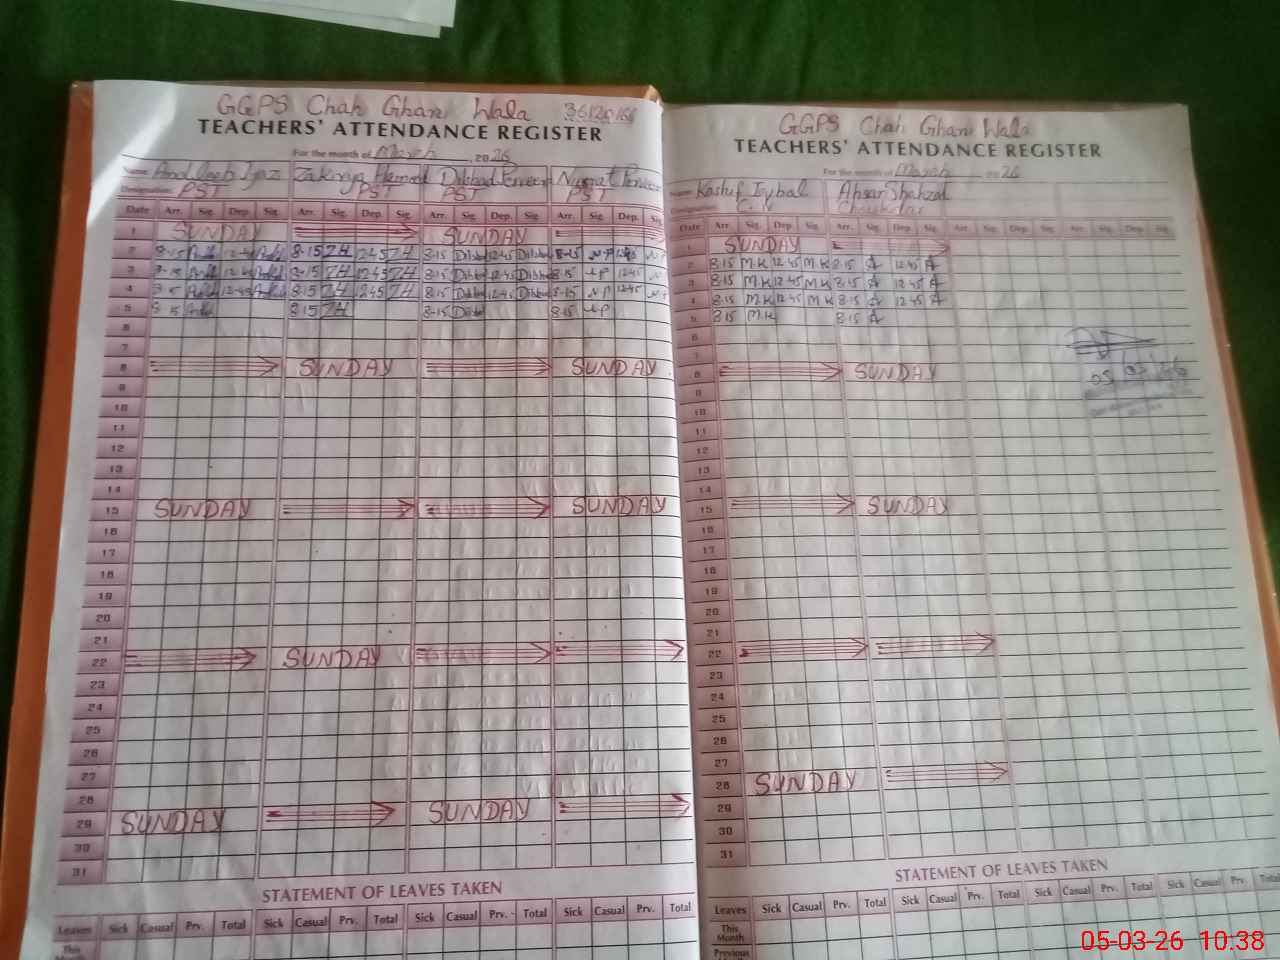 GGPS Chah Ghani Wala 36120166
TEACHERS' ATTENDANCE REGISTER
For the month of March, 2026
Name Andleeb Ijaz Zakriya Hameed Dilshad Perveen Nusrat Perveen
Designation PST PST PST PST
Date Arr. Sig. Dep. Sig. Arr. Sig. Dep. Sig. Arr. Sig. Dep. Sig. Arr. Sig. Dep. Sig.
1 SUNDAY SUNDAY
2 8-15 12-45 8-15 ZH 1245 ZH 8-15 12-45 8-15 N.P 1245 N.P
3 8-15 12-45 8-15 ZH 1245 ZH 8-15 12-45 8-15 N.P 1245 N.P
4 12-45 8-15 ZH 1245 ZH 8-15 12-45 8-15 N.P 1245 N.P
5 8-15 8-15 ZH 8-15 8-15 N.P
6
7
8 SUNDAY SUNDAY
9
10
11
12
13
14
15 SUNDAY SUNDAY
16
17
18
19
20
21
22 SUNDAY
23
24
25
26
27
28
29 SUNDAY SUNDAY
30
31
STATEMENT OF LEAVES TAKEN
Leaves Sick Casual Prv. Total Sick Casual Prv. Total Sick Casual Prv. Total Sick Casual Prv. Total
This
Month
GGPS Chah Ghani Wala
TEACHERS' ATTENDANCE REGISTER
For the month of March 2026
Name Kashif Iqbal Ahsan Shahzad
Designation
Date Arr. Sig. Dep. Sig. Arr. Sig. Dep. Sig. Arr. Sig. Dep. Sig. Arr. Sig. Dep. Sig.
1 SUNDAY
2 8-15 M.K 12-45 M.K 8-15 A 12-45 A
3 8-15 M.K 12-45 M.K 8-15 A 12-45 A
4 8-15 M.K 12-45 M.K 8-15 A 12-45 A
5 8-15 M.K 8-15 A
6
7
8 SUNDAY
05 03 26
9
10
11
12
13
14
15 SUNDAY
16
17
18
19
20
21
22
23
24
25
26
27
28 SUNDAY
29
30
31
STATEMENT OF LEAVES TAKEN
Leaves Sick Casual Prv. Total Sick Casual Prv. Total Sick Casual Prv. Total Sick Casual Prv. Total
This
Month
Previous
05-03-26 10:38